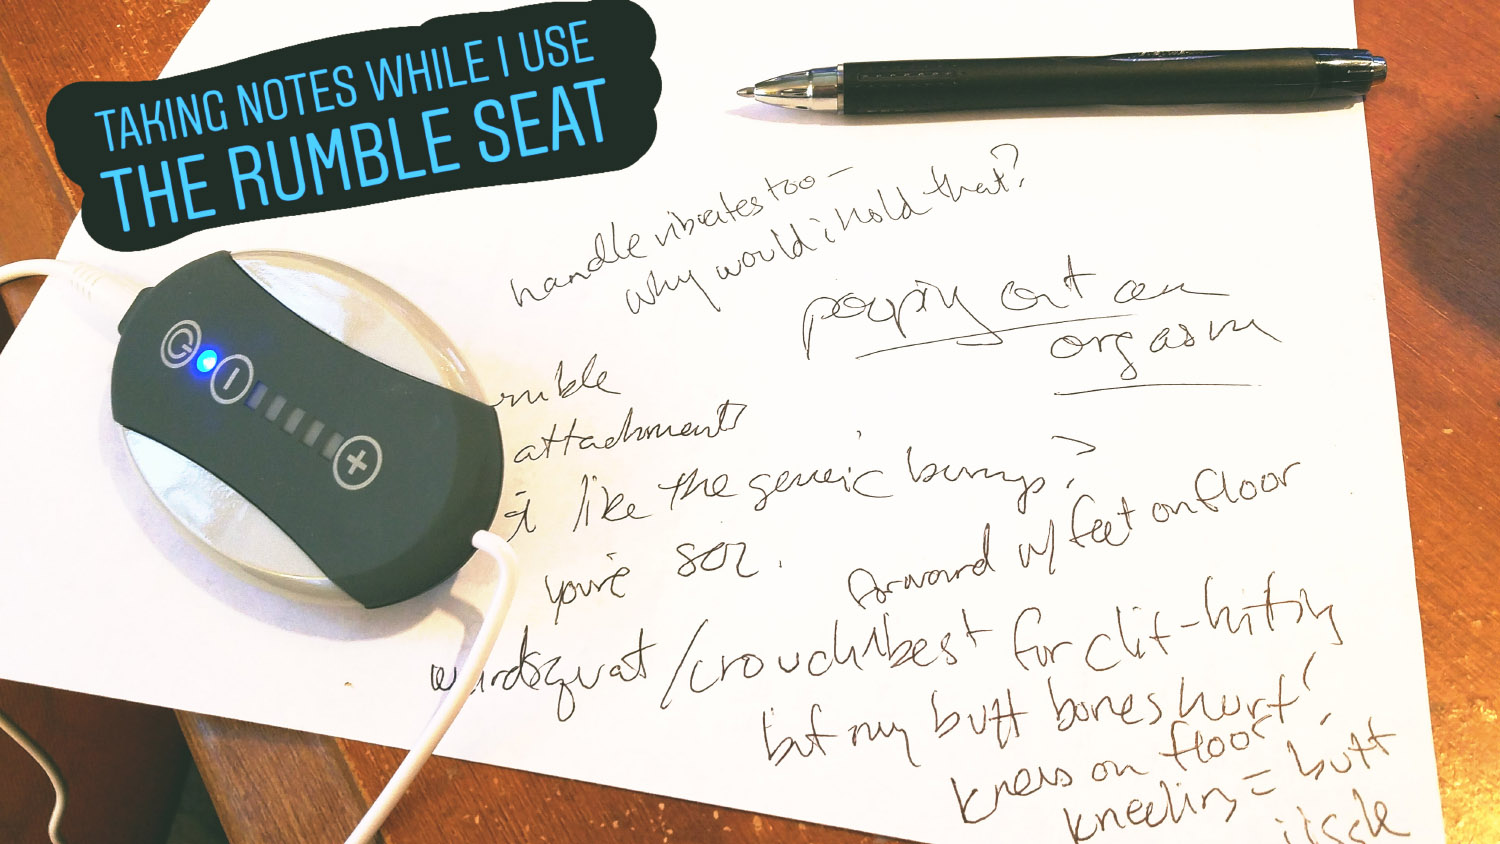 TAKING NOTES WHILE I USE
THE RUMBLE SEAT
handle vibrates too -
why would i hold that?
orgasm
attachments
like the generic bump?
you're SOL.
forward w/ feet on floor
squat/crouch best for clit-hitting
but my butt bones hurt!
knees on floor
kneeling = butt